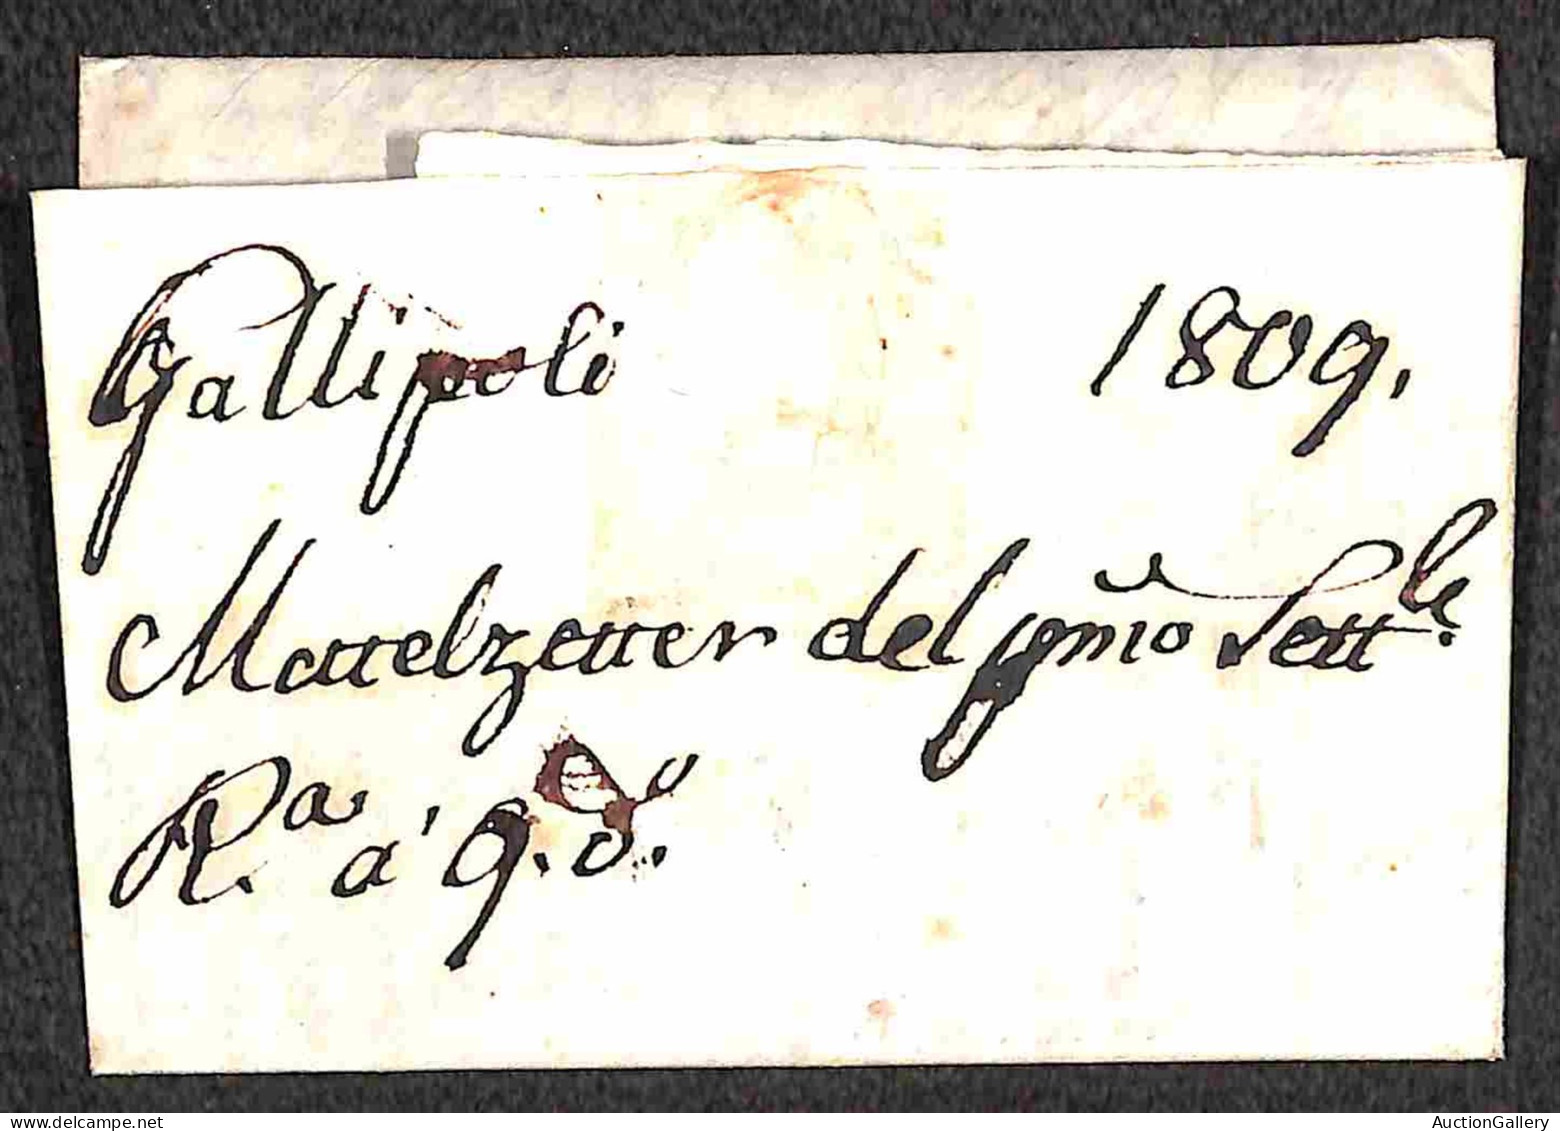 Gallipoli 1809.
Mattelzetter del pmo Sett.le
R.a à 9. d.o
AuctionGallery